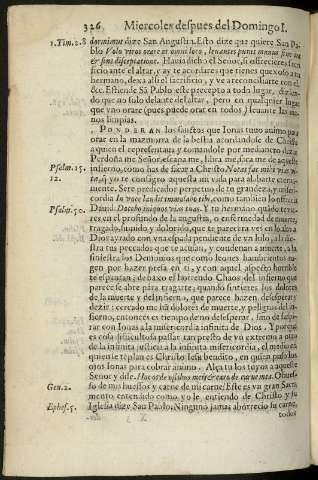 326 Miercoles despues del Domingo I.
1. Tim. 2. 8 dormimus dize San Augustin. Esto dize que quiere San Pa-
blo Volo viros orare in omni loco, levantes puras manus sine ira
& sine disceptatione. Havia dicho el Señor, si offrecieres sa-
ficio ante el altar, y ay te acordares que tienes quexoso a tu
hermano, dexa alli el sacrificio, y ve a reconciliarte con el
&c. Estiende Sā Pablo este precepto a todo lugar, diziendo
que no solo delante del altar, pero en qualquier lugar
que vno orare (pues puede orar en todos) levante las ma-
nos limpias.
PONDERAN los sanctos que Ionas tuvo animo para
orar en la mazmorra de la bestia acordandose de Christo
a quien el representava; y tomandole por medianero dixera
Perdoname Señor, escapame, librame, sacame de aqueste
Psalm. 15. infierno, como has de sacar a Christo Notas
12. te, q yo te consagro aquesta mi vida para alabarte eterna-
mente. Sere predicador perpetuo de tu grandeza, y miseri-
cordia
Psalm. 50. David Docebo iniquos vias tuas. Y tu hermano quando te vie-
res en el profundo de la angustia, o enfermedad de muerte,
tragado, hundido, y dolorido, que te parecera ves con los
la siniestra los Demonios que como leones hambrientos
gen por hazer presa en ti, y con aquel aspecto horrible
te espantan; debaxo el horrendo Chaos del infierno que
parece se abre para tragarte; quando sintieres los dolores
de la muerte y del infierno, que parece hazen desesperar y
dezir: cercado me hā dolores de muerte, y peligros del in-
fierno, entonces es tiempo de no desesperar, sino de suspi-
rar con Ionas a la misericordia infinita de Dios. Y porque
es cosa dificultosa passar tan presto de vn extremo a otro
de la infinita justicia a la infinita misericordia, el medio
quien se tēplan es Christo Iesu bendito, en quien puso los
ojos Ionas para cobrar animo. Alça tu los tuyos a aqueste
Señor y dile. Hoc os de ossibus meis & caro de carne mea. O huesso
Gen. 2. de mis huessos y carne de mi carne! Este es vn gran Sacra-
mento entendido como yo le entiendo de Christo y su
Ephes. 5. Iglesia dize San Pablo; Ninguno jamas aborrecio su carne,
todos